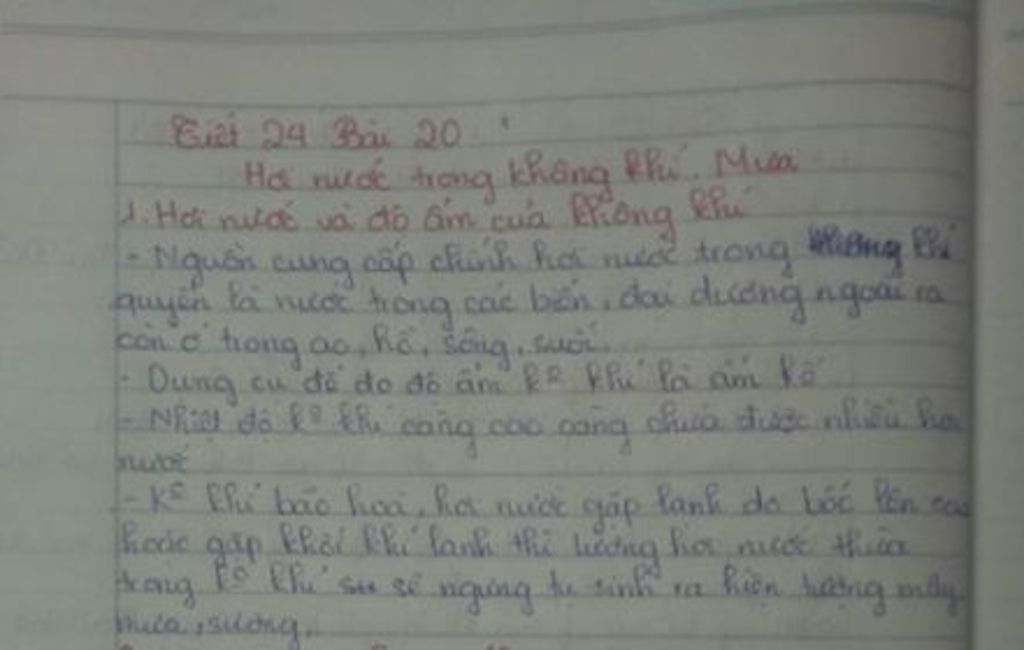 Tiết 24 Bài 20
Hơi nước trong không khí. Mưa
1. Hơi nước và độ ẩm của không khí
- Nguồn cung cấp chính hơi nước trong không khí
quyển là nước trong các biển, đại dương ngoài ra
còn ở trong ao, hồ, sông, suối.
- Dụng cụ để đo độ ẩm kº khí là ẩm kế
- Nhiệt độ kº khí càng cao càng chứa được nhiều hơi
nước
- Kº khí bão hoà, hơi nước gặp lạnh do bốc lên cao
hoặc gặp khối khí lạnh thì lượng hơi nước thừa
trong kº khí sẽ ngưng tụ sinh ra hiện tượng mây,
mưa, sương.